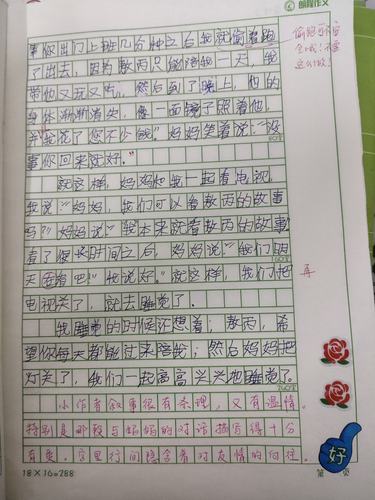 朗程作文
事你出门上班几分钟之后我就偷着跑
了出去，因为敖丙只能陪我一天，我
带他又玩又吃。然后到了晚上，他的
身体渐渐消失，像一面镜子照着他，
并我说了您不少钱。"妈妈笑着说："没
事你回来就好。"
就这样，妈妈和我一起看电视，
我说："妈妈，我们可以看敖丙的故事
吗？"妈妈说："我本来就看敖丙的故事
看了很长时间之后，妈妈说："我们明
天看吧！"我说好。"就这样，我们把
电视关了，就去睡觉了。
我睡觉的时候还想着；敖丙，希
望你每天都能过来陪我；然后妈妈把
灯关了，我们一起高高兴兴地睡觉了。
偷跑可不安
全哦！不要
这么做！
再
小作者叙事很有条理，又有温情。
特别是那段与妈妈的对话描写得十分
有爱，字里行间隐含着对友情的向往。
18×16=288
第 页
好